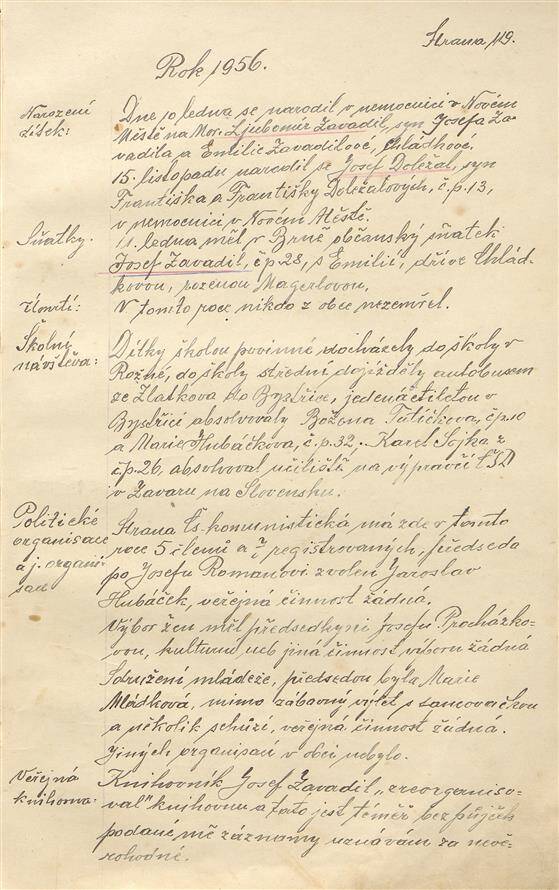 Strana 119.
Rok 1956.
Narození
dítek:
Dne 10 ledna se narodil v nemocnici v Novém
Městě na Mor. Ljubomír Zavadil, syn Josefa Za-
vadila a Emilie Zavadilové, Chládkové.
15. listopadu narodil se Josef Doležal, syn
Františka a Františky Doležalových, č.p. 13,
v nemocnici v Novém Městě.
Sňatky.
11. ledna měl v Brně občanský sňatek
Josef Zavadil, č.p. 28, s Emilií, dříve Chlád-
kovou, rozenou Magerlovou.
Úmrtí:
V tomto roce nikdo z obce nezemřel.
Školní
návštěva:
Dítky školou povinné docházely do školy v
Rožné, do školy střední dojížděly autobusem
ze Zlatkova do Bystřice, jedenáctiletou v
Bystřici absolvovaly Božena Tulíčkova, č.p. 10
a Marie Hubáčkova, č.p. 32, Karel Sojka z
č.p. 26, absolvoval učiliště na výpravčí ČSD
v Zavaru na Slovensku.
Politické
organisace
a j. organi-
sací
Strana Čs. komunistická má zde v tomto
roce 5 členů a registrovaných, předseda
po Josefu Romanovi zvolen Jaroslav
Hubáček, veřejná činnost žádná.
Výbor žen měl předsedkyni Josefu Procházko-
vou, kulturní neb jiná činnost výboru žádná
Sdružení mládeže, předsedou byla Marie
Mládková, mimo zábavný výlet s samovačkou
a několik schůzí, veřejná činnost žádná.
Jiných organisací v obci nebylo.
Veřejná
knihovna:
Knihovník Josef Zavadil „zreorganiso-
val" knihovnu a tato jest téměř bez půjček
podané mě záznamy uznávám za nevě-
rohodné.